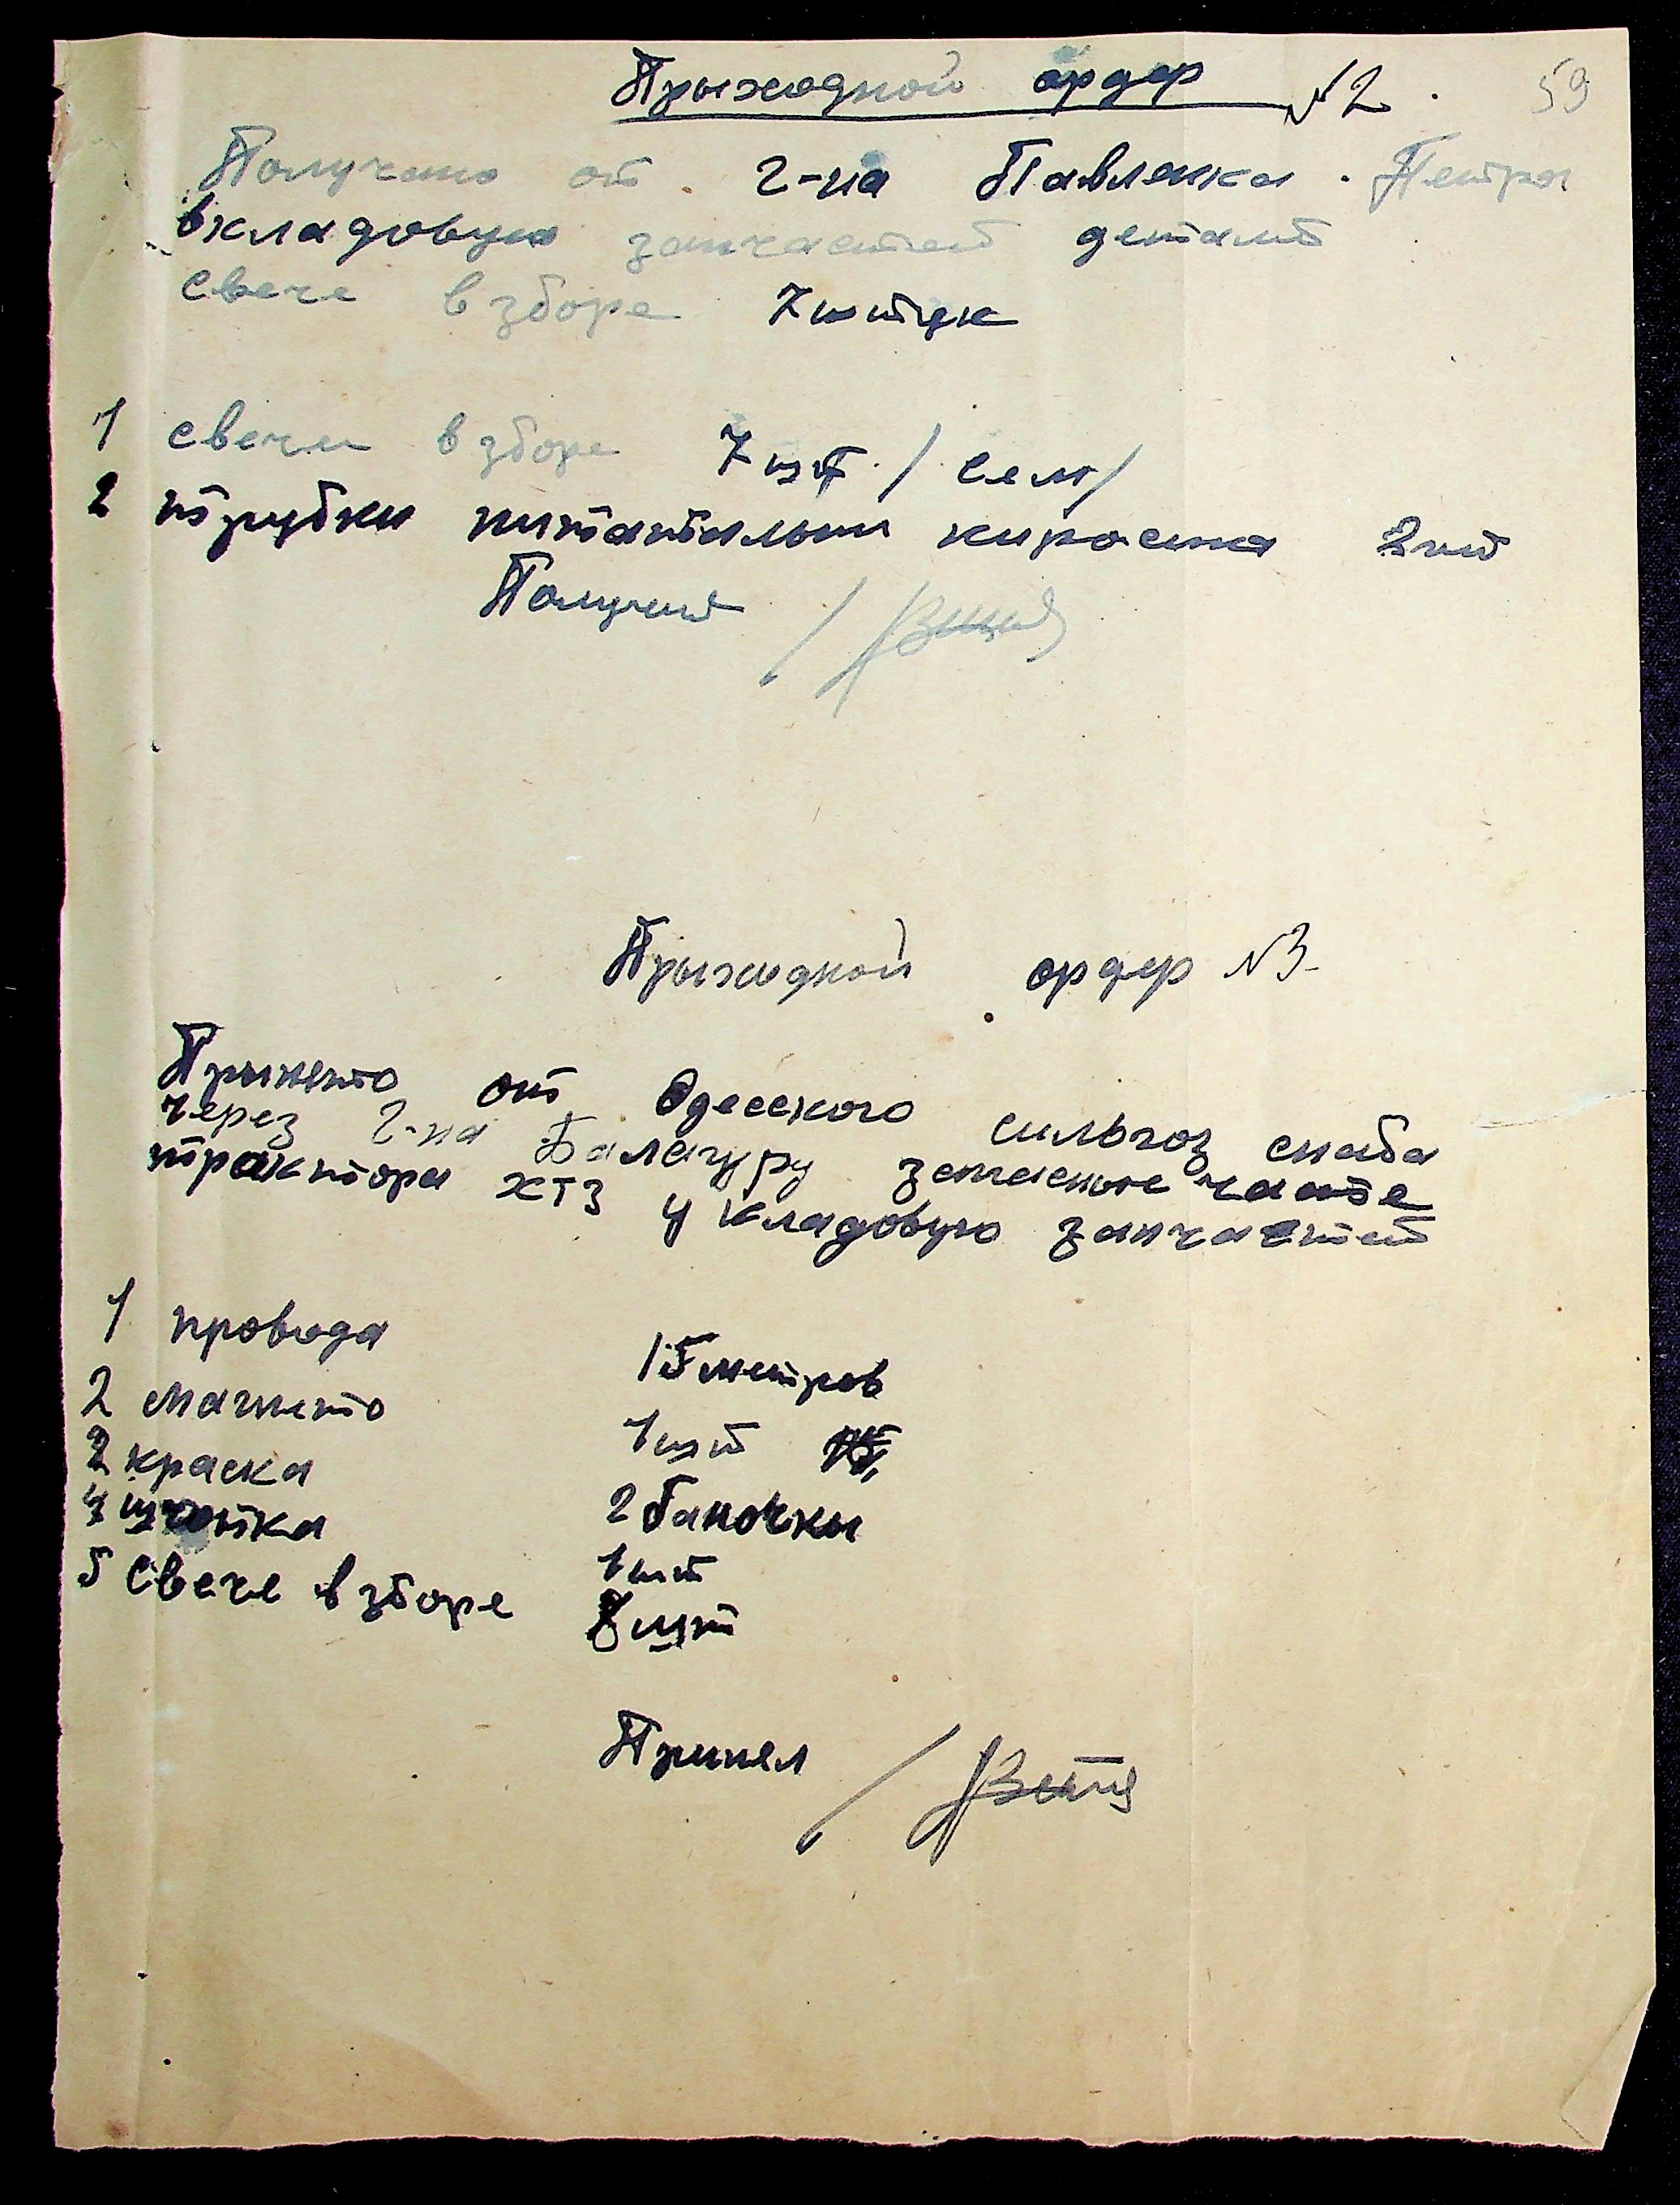 59
Прыходной ордер №2.
Получено от г-на Павленка Петра
вкладовую запчастей деталей
свече взборе 7 штук
1 свечи взборе 7 шт. /сем/
2 трубки питательни киросина 2 шт
Получил /
Прыходной ордер №3
Прынето от Одесского сильгоз снаба
через г-на Балагуру запасные часте
трактора ХТЗ у кладовую запчастей
1 провода 15 метров
2 магнето 1 шт
3 краска 2 баночкы
4 щчотка 1 шт
5 Свече взборе 8 шт
Принел /